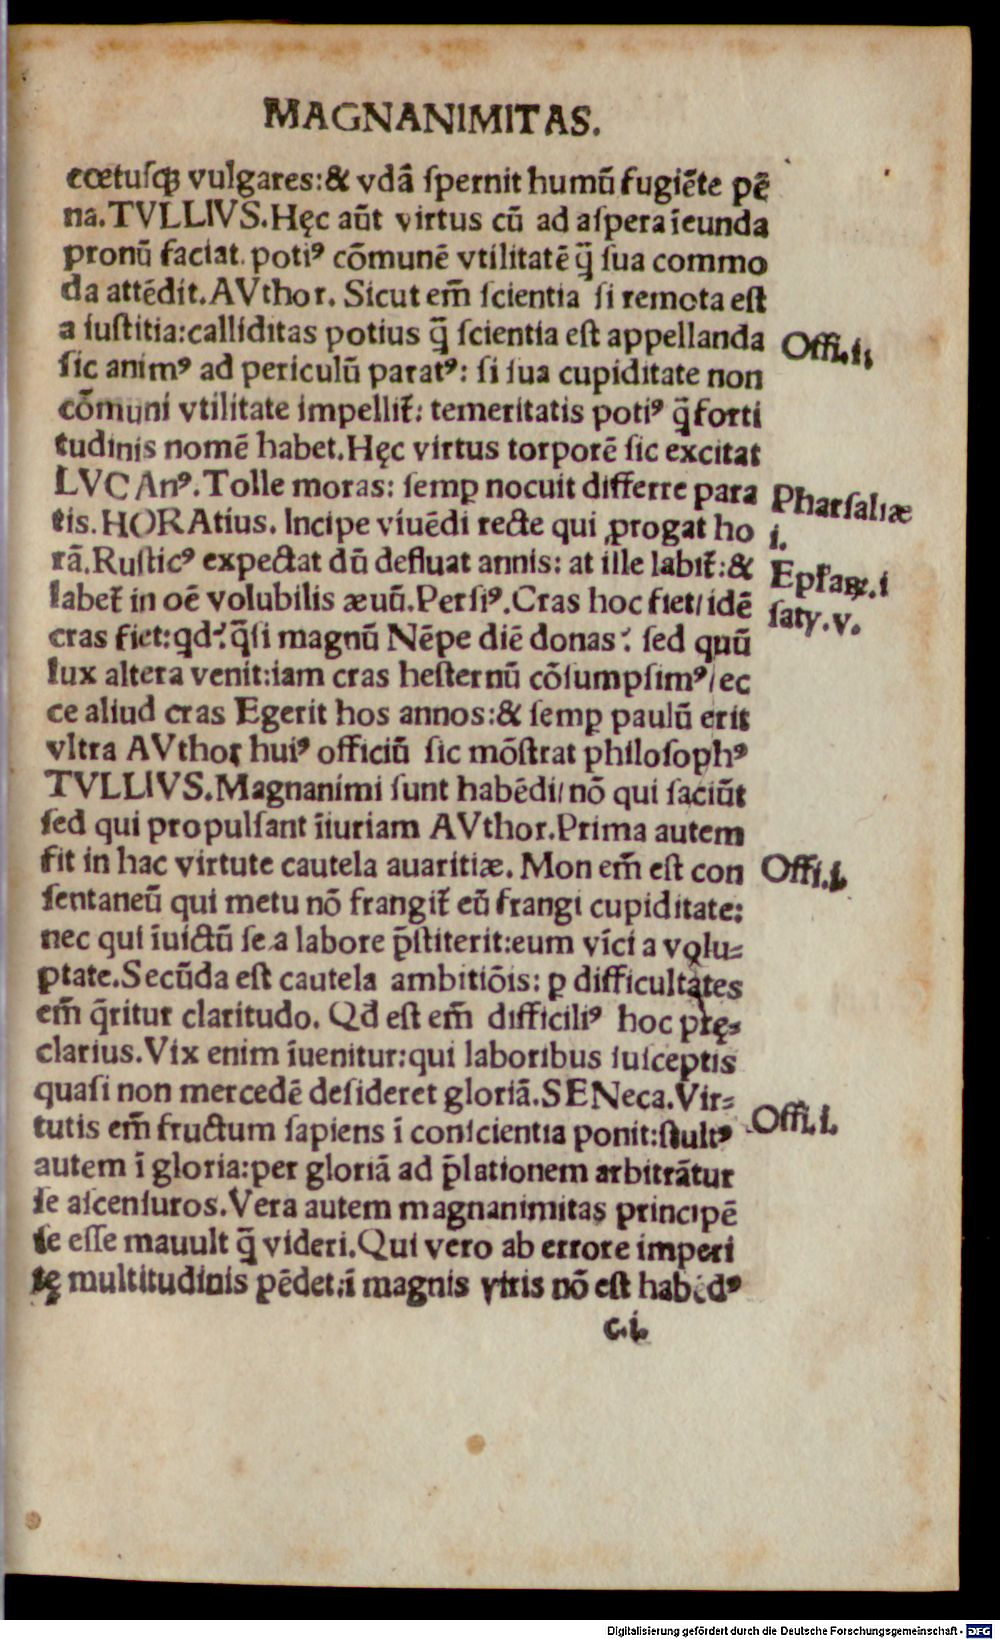 MAGNANIMITAS.
cœtuſqꝫ vulgares:& vdã ſpernit humũ fugiẽte pẽ
na. TVLLIVS. Hęc aũt virtus cũ ad aſpera ĩeunda
pronũ faciat. potiꝰ cõmunẽ vtilitatẽ q̃ ſua commo
da attẽdit. AVthor. Sicut em̃ ſcientia ſi remota eſt
a iuſtitia: calliditas potius q̃ ſcientia eſt appellanda
Offi. i;
ſic animꝰ ad periculũ paratꝰ: ſi ſua cupiditate non
cõmuni vtilitate impellit̃: temeritatis potiꝰ q̃ forti
tudinis nomẽ habet. Hęc virtus torporẽ ſic excitat
LVCAnꝰ. Tolle moras: ſemꝑ nocuit differre para
Pharſaliæ
tis. HORAtius. Incipe viuẽdi recte qui ꝓrogat ho
i.
rã. Ruſticꝰ expectat dũ defluat annis: at ille labit̃:&
Epl̃aꝝ. i
labet̃ in oẽ volubilis æuũ. Perſiꝰ. Cras hoc fiet/ idẽ
ſaty. v.
cras fiet: qd? q̃ſi magnũ Nẽpe diẽ donas? ſed quũ
lux altera venit: iam cras heſternũ cõſumpſimꝰ/ ec
ce aliud cras Egerit hos annos:& ſemꝑ paulũ erit
vltra AVthor huiꝰ officiũ ſic mõſtrat philoſophꝰ
TVLLIVS. Magnanimi ſunt habẽdi/ nõ qui faciũt
ſed qui propulſant ĩiuriam AVthor. Prima autem
fit in hac virtute cautela auaritiæ. Mon em̃ eſt con
Offi. i.
ſentaneũ qui metu nõ frangit̃ eũ frangi cupiditate:
nec qui ĩuictũ ſe a labore p̃ſtiterit: eum vĩci a volu-
ptate. Secũda eſt cautela ambitiõis: ꝑ difficultates
em̃ q̃ritur claritudo. Qd eſt em̃ difficiliꝰ hoc pre̜-
clarius. Vix enim ĩuenitur: qui laboribus ſuſceptis
quaſi non mercedẽ deſideret gloriã. SENeca. Vir-
tutis em̃ fructum ſapiens ĩ conſcientia ponit: ſtultꝰ
Offi. i.
autem ĩ gloria: per gloriã ad p̃lationem arbitrãtur
ſe aſcenſuros. Vera autem magnanimitas principẽ
ſe eſſe mauult q̃ videri. Qui vero ab errore imperi
tę multitudinis pẽdet: ĩ magnis viris nõ eſt habẽdꝰ
c. i.
Digitalisierung gefördert durch die Deutsche Forschungsgemeinschaft - DFG